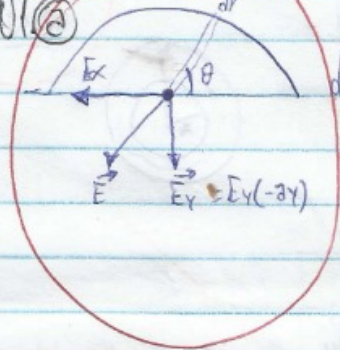 dl
Ex
θ
E⃗
E⃗y = Ey(-ay)